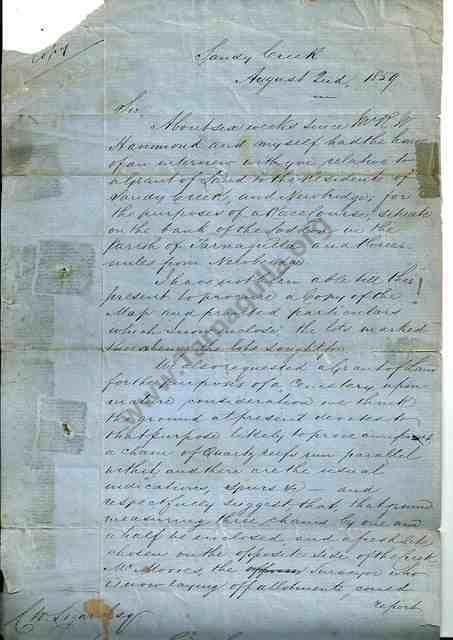 Copy
Sandy Creek
August 2nd, 1859
Sir
About six weeks since Mr R W
Hammond and myself had the honor
of an interview with you relative to
a grant of Land to the Residents of
Sandy Creek, and Newbridge, for
the purposes of a Race Course, situate
on the bank of the Loddon in the
parish of Tarnagulla and three
miles from Newbridge
I have not been able till the
present to procure a Copy of the
Map and printed particulars
which I now inclose the lots marked
being the lots sought for
We also requested a grant of Land
for the purposes of a Cemetery, upon
mature consideration we think
the ground at present devoted to
that purpose likely to prove auriferous
a chain of Quartz reefs run parallel
with it, and there are the usual
indications, spurs &c — and
respectfully suggest that, that ground
measuring three chains by one and
a half be inclosed and a fresh site
chosen on the opposite side of the creek
Mr Couves, the Surveyor who
is now laying off allotments, could
report
C W Ligar Esq
www.Tarnagulla.org